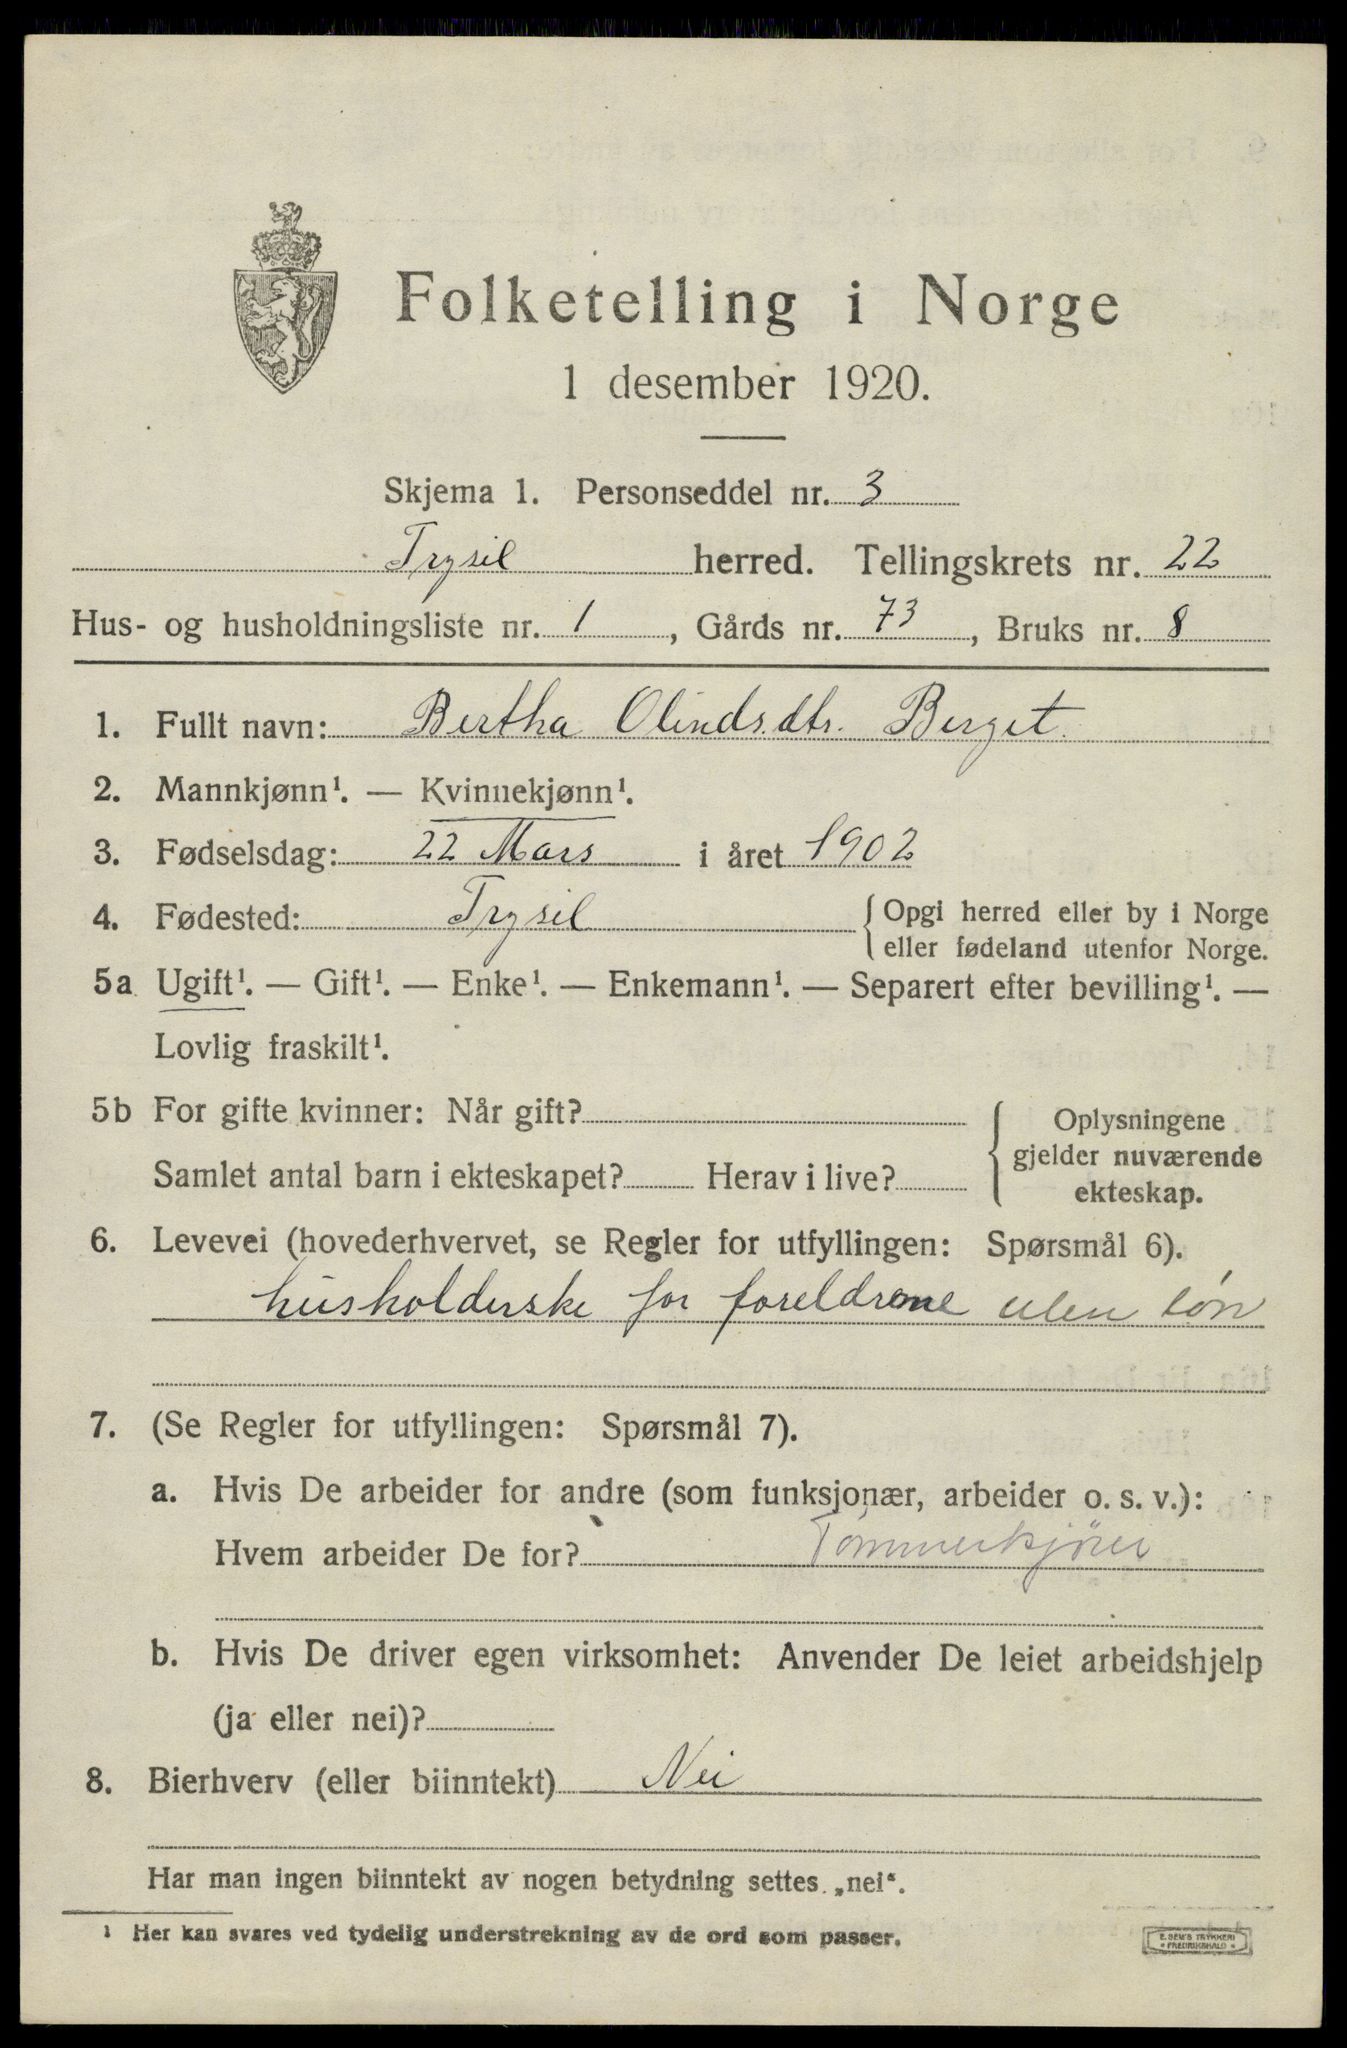 Folketelling i Norge
1 desember 1920.
Skjema 1. Personseddel nr. 3
Trysil herred. Tellingskrets nr. 22
Hus- og husholdningsliste nr. 1, Gårds nr. 73, Bruks nr. 8
1. Fullt navn: Bertha Olinds.dtr. Berget.
2. Mannkjønn¹. — Kvinnekjønn¹.
3. Fødselsdag: 22 Mars i året 1902
4. Fødested: Trysil { Opgi herred eller by i Norge
eller fødeland utenfor Norge.
5a Ugift¹. — Gift¹. — Enke¹. — Enkemann¹. — Separert efter bevilling¹. —
Lovlig fraskilt¹.
5b For gifte kvinner: Når gift? { Oplysningene
gjelder nuværende
Samlet antal barn i ekteskapet? Herav i live?
ekteskap.
6. Levevei (hovederhvervet, se Regler for utfyllingen: Spørsmål 6).
husholderske for foreldrene uten løn
7. (Se Regler for utfyllingen: Spørsmål 7).
a. Hvis De arbeider for andre (som funksjonær, arbeider o. s. v.):
Hvem arbeider De for? Tømmerkjører
b. Hvis De driver egen virksomhet: Anvender De leiet arbeidshjelp
(ja eller nei)?
8. Bierhverv (eller biinntekt) Nei
Har man ingen biinntekt av nogen betydning settes „nei“.
¹ Her kan svares ved tydelig understrekning av de ord som passer.
E. SEM'S TRYKKERI
• FREDRIKSHALD •